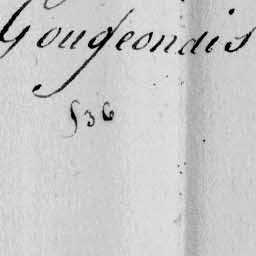 Gougeon dis
§36